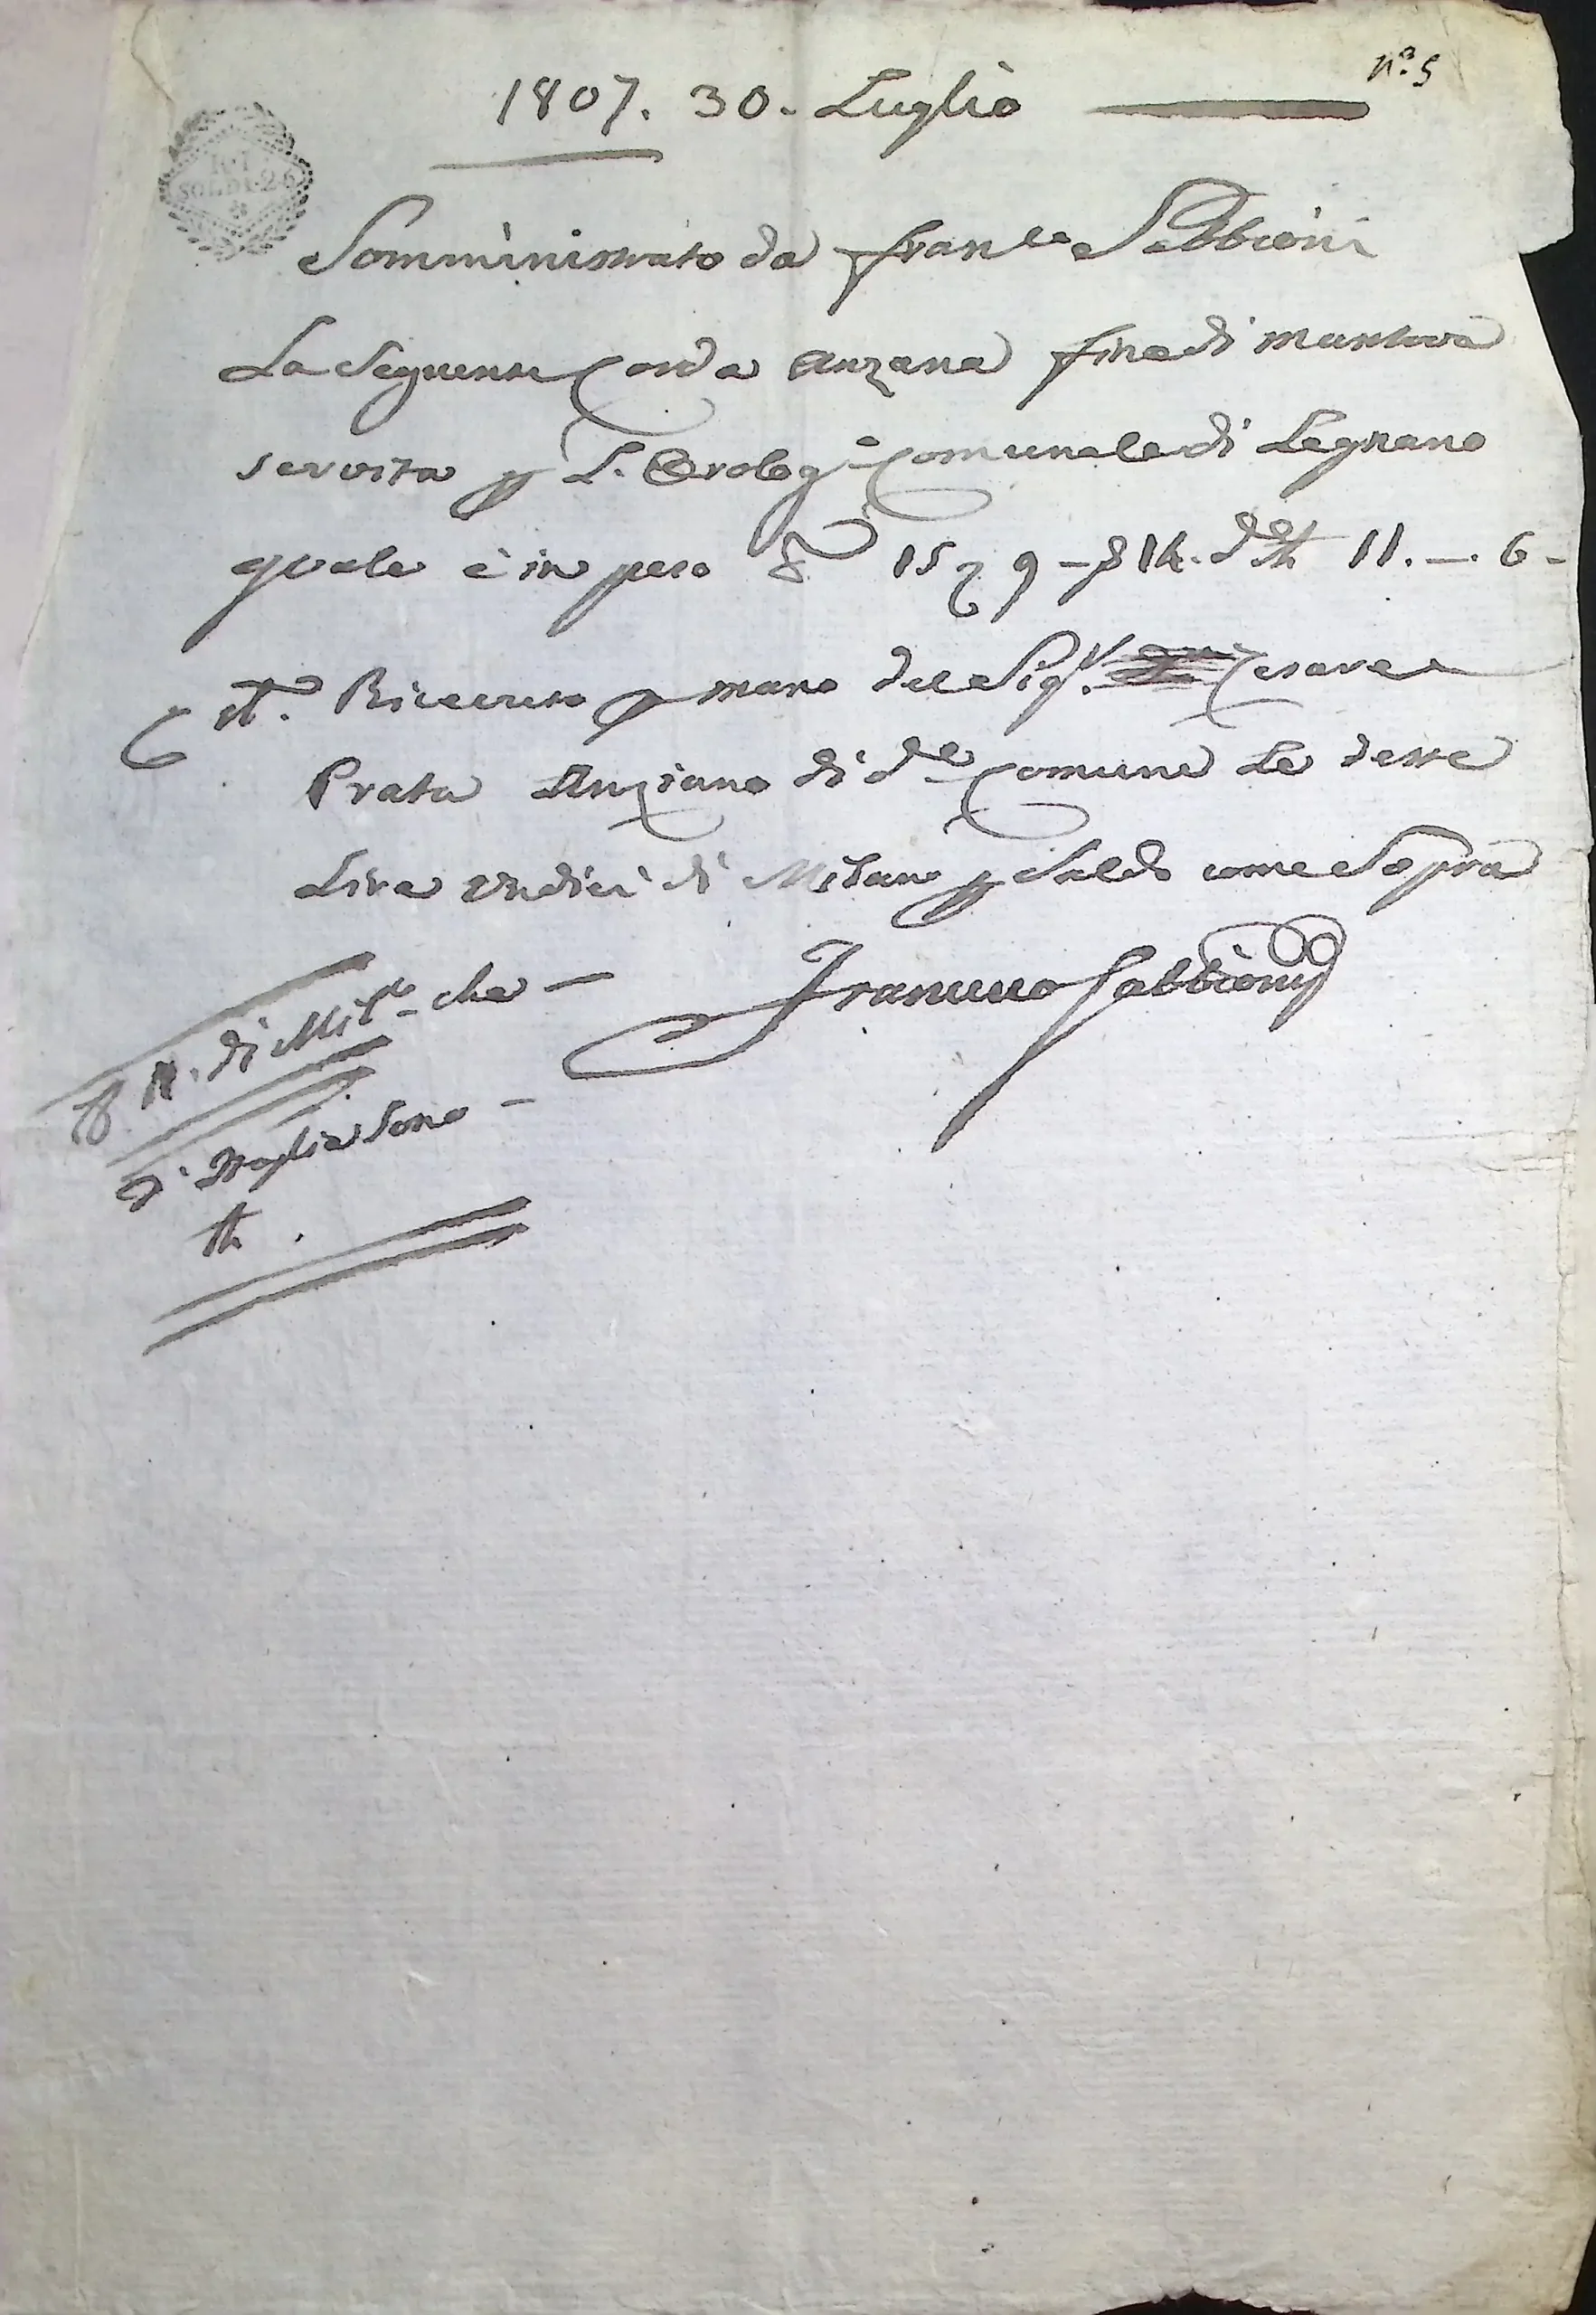 nº. 5
1807. 30. Luglio
R. I.
SOLDI. 26
Somministrato da Franco Sabbioni
La Seguente Corda Anzana fina di Mantova
servita p L. Orologo Comunale di Legnano
quale è in peso 15 9 - 14. d 11. — 6 -
Riceuto p mano del Sigr. Cesare
Prata Anziano di de Comune Le dette
Lire Undici di Milano p Saldo come Sopra
Francesco Sabbioni
di Milo che —
d'Italia sono —